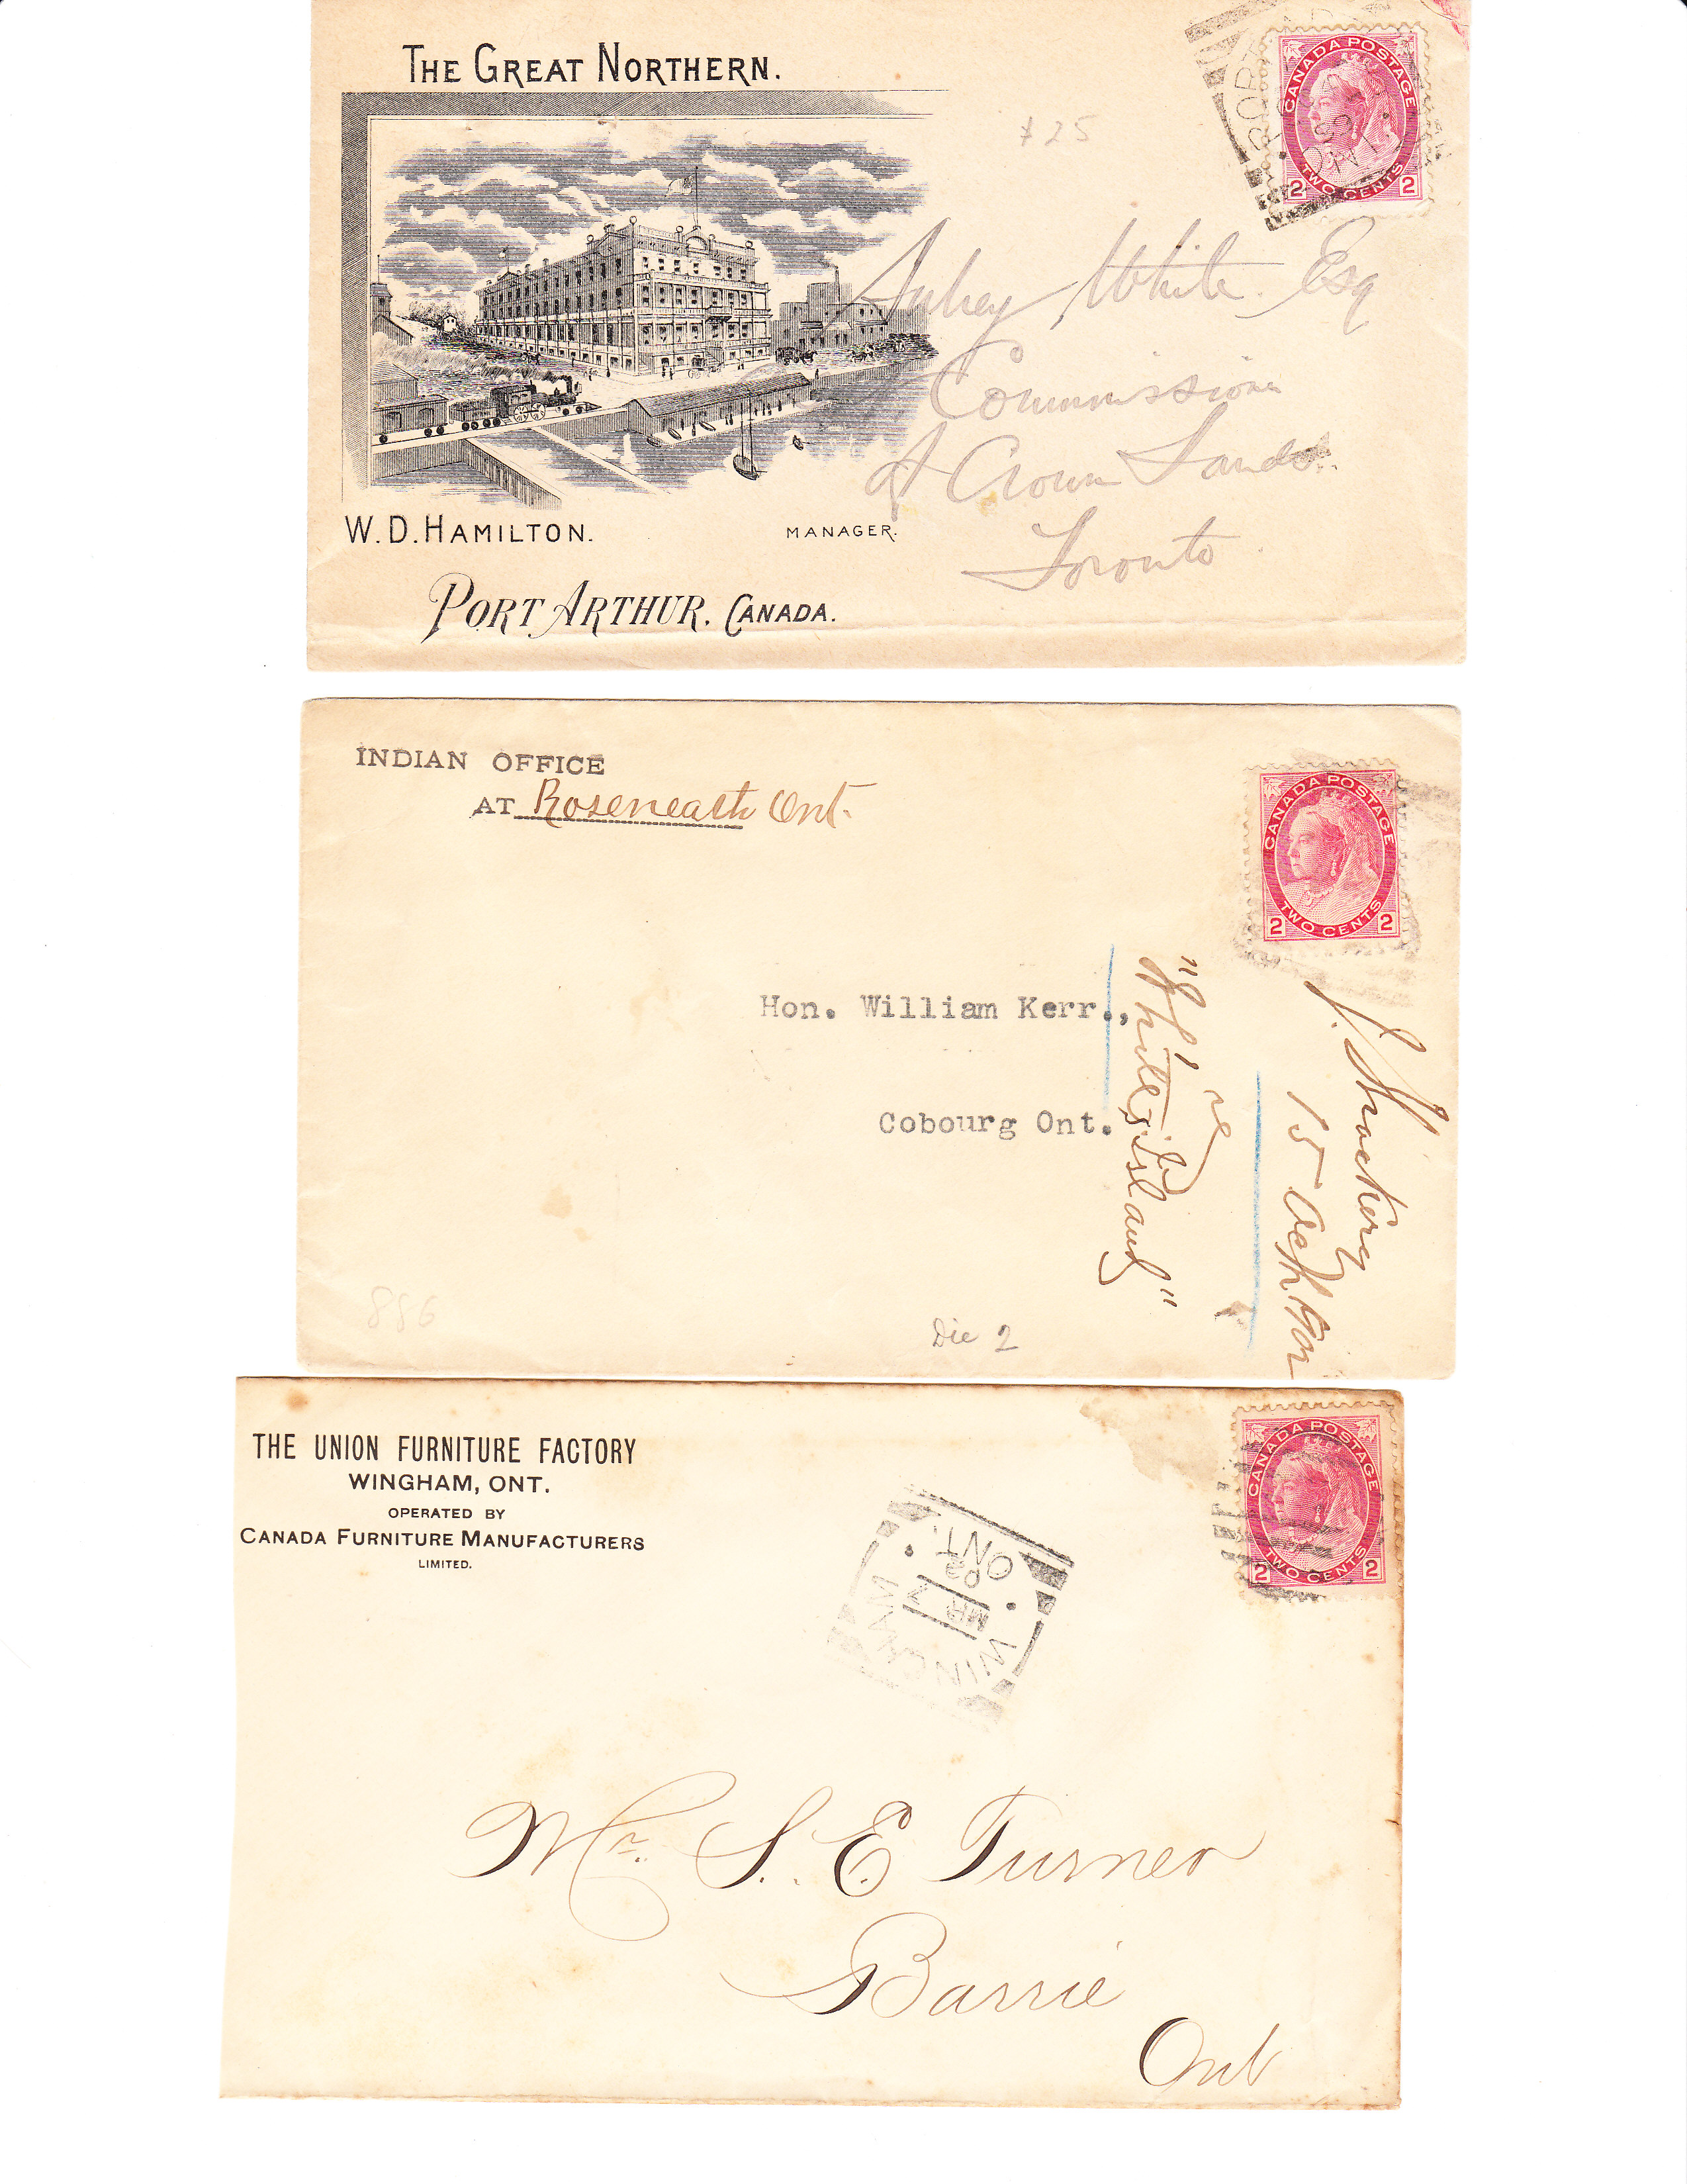 THE GREAT NORTHERN.
$25
CANADA POSTAGE
2 TWO CENTS 2
PORT
ONT
Aubrey White Esq
Commissioner
of Crown Lands
Toronto
W. D. HAMILTON. MANAGER.
PORT ARTHUR, CANADA.
INDIAN OFFICE
AT Roseneath Ont.
CANADA POSTAGE
2 TWO CENTS 2
Hon. William Kerr.,
Cobourg Ont.
re
"White's Island"
15
886
Die 2
THE UNION FURNITURE FACTORY
WINGHAM, ONT.
OPERATED BY
CANADA FURNITURE MANUFACTURERS
LIMITED.
CANADA POSTAGE
2 TWO CENTS 2
WINGHAM
MR
02
ONT.
Mr. S. E. Turner
Barrie
Ont